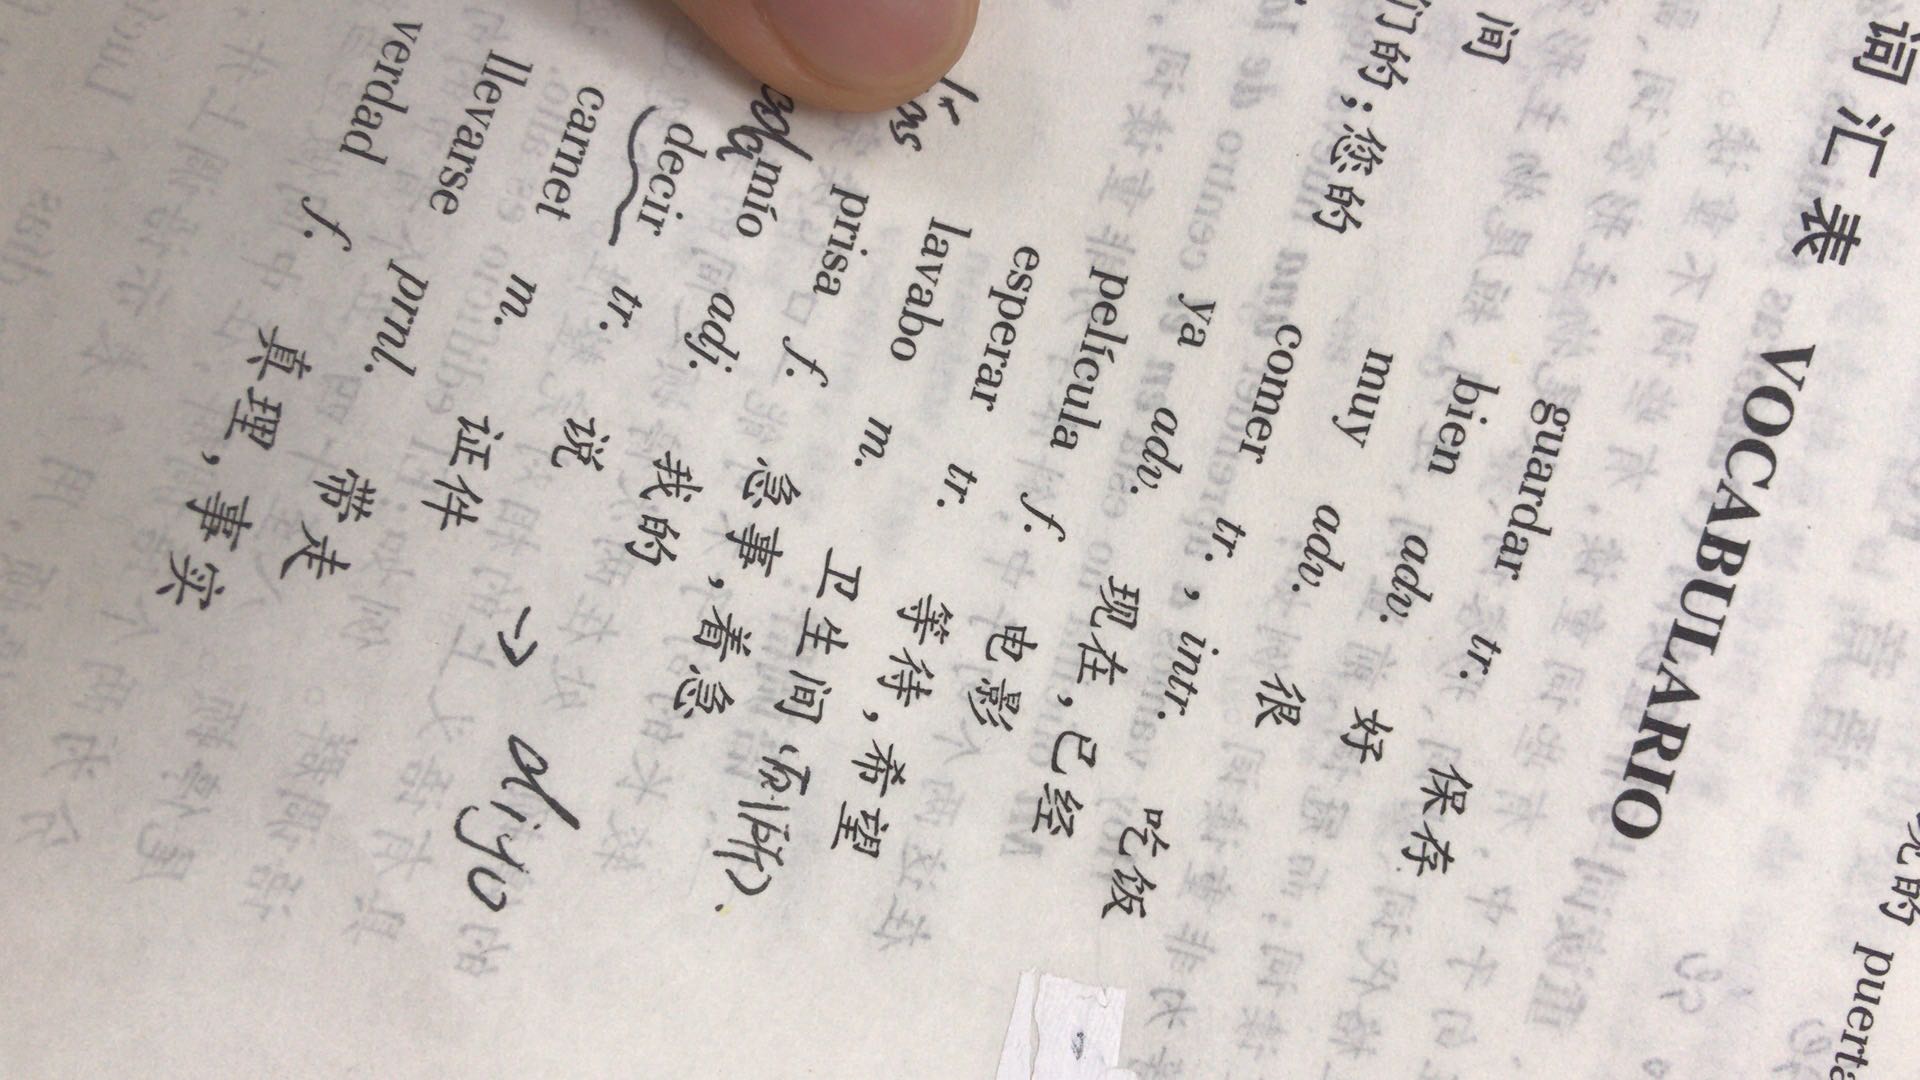 词汇表 VOCABULARIO
间
们的；您的
guardar tr. 保存
bien adv. 好
muy adv. 很
comer tr., intr. 吃饭
ya adv. 现在，已经
película f. 电影
esperar tr. 等待，希望
lavabo m. 卫生间
prisa f. 急事，着急
mío adj. 我的
decir tr. 说
carnet m. 证件 → digo
llevarse prnl. 带走
verdad f. 真理，事实
的 puerta